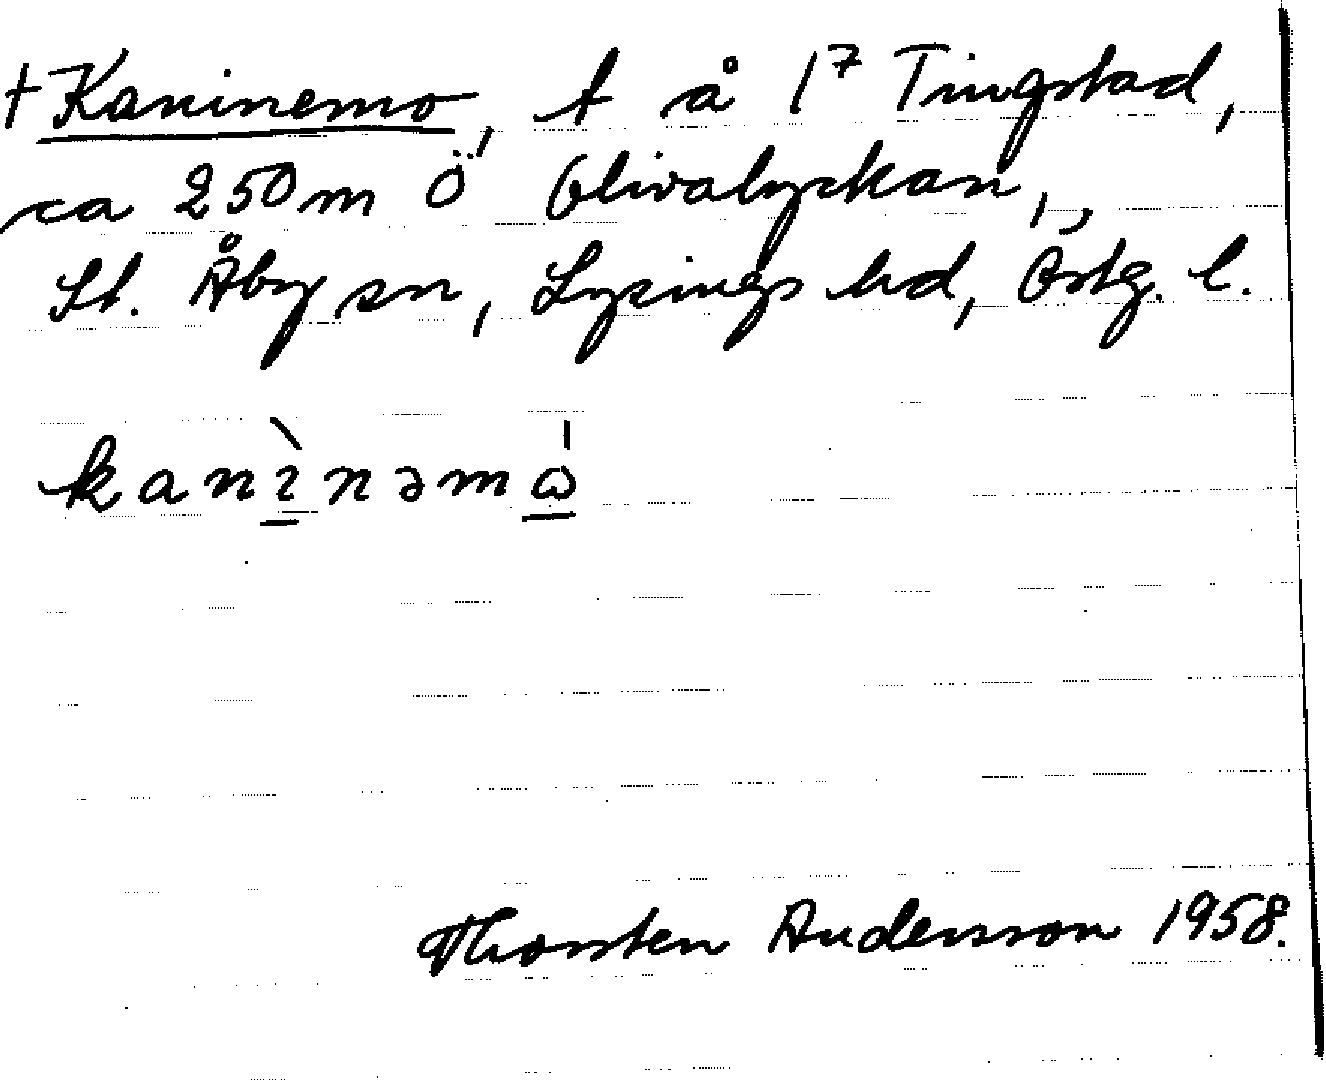 †Kaninemo, t å 1⁷ Tingstad,
ca 250 m Ö Olivalyckan,,
St. Åby sn, Lysings hd, Östg. l.
kanìnəmɷ̀
Thorsten Andersson 1958.